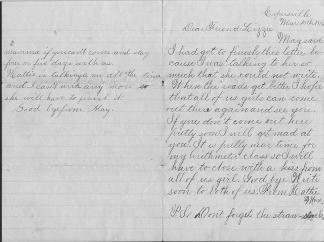 2
mamma if you will come and stay
four or five days with us.
Hattie is talking to me all the time
and I can't write any more so
she will have to finish it.
Good bye from May.
Dear Friend Lizzie
May said
I had got to finish this letter be
cause I was talking to her so
much that she could not write.
When the roads get better I hope
that all of us girls can come
out there again and see you.
If you don't come out here
pretty soon I will get mad at
you. It is pretty near time for
my arithmetic class so I will
have to close with a kiss from
all of us girls. Good bye. Write
soon to both of us. From Hattie
P.S. Don't forget the straw